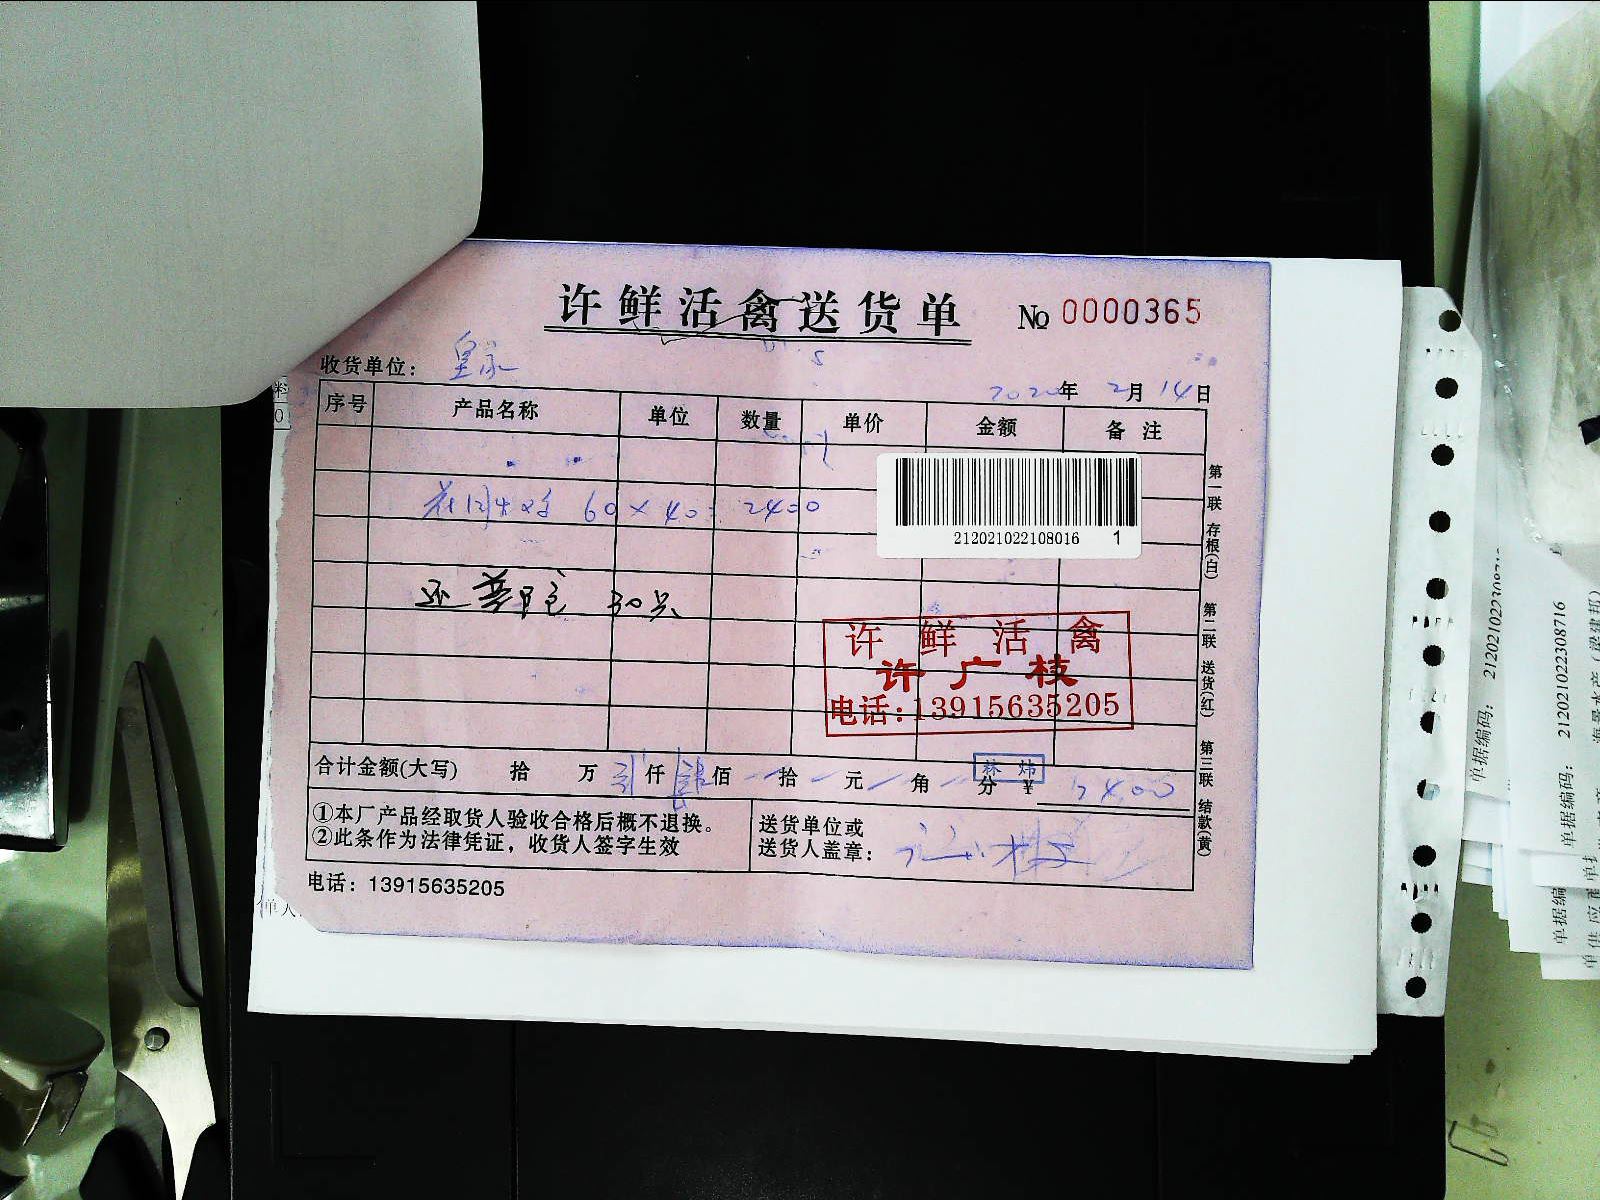 许鲜活禽送货单 № 0000365
收货单位：皇家
2020年 2月 14日
序号 产品名称 单位 数量 单价 金额 备注
60 × 40 = 2400
212021022108016 1
还 30只
许鲜活禽
许广枝
电话：13915635205
合计金额(大写) 拾 万 贰仟 肆佰 拾 元 角 分 ¥ 2400
林炜
①本厂产品经取货人验收合格后概不退换。
②此条作为法律凭证，收货人签字生效
送货单位或
送货人盖章：
电话：13915635205
第一联 存根(白)
第二联 送货(红)
第三联 结款(黄)
料
0
单人
单据编码：
单据编码： 212021022308716
单据编